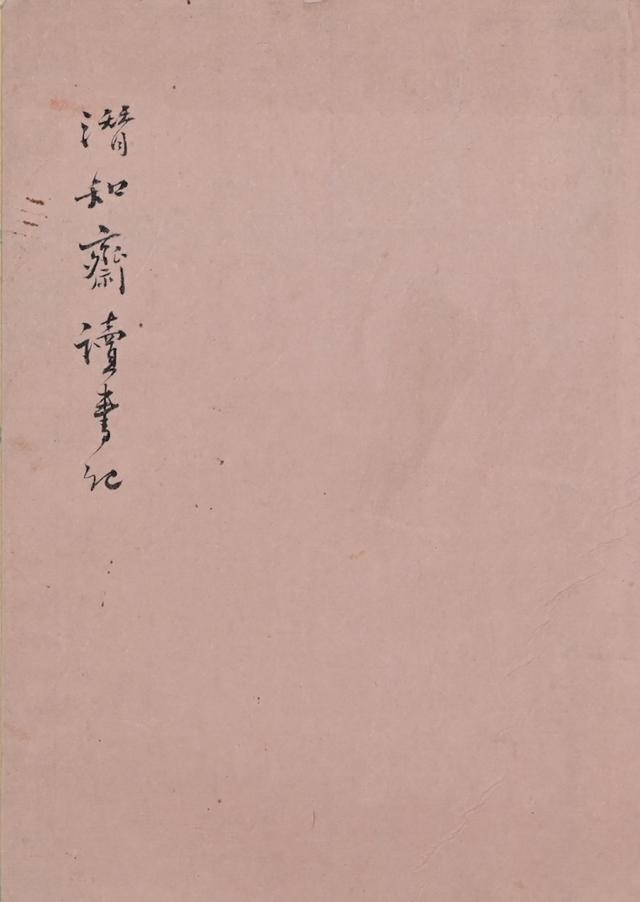 潛知齋讀書記